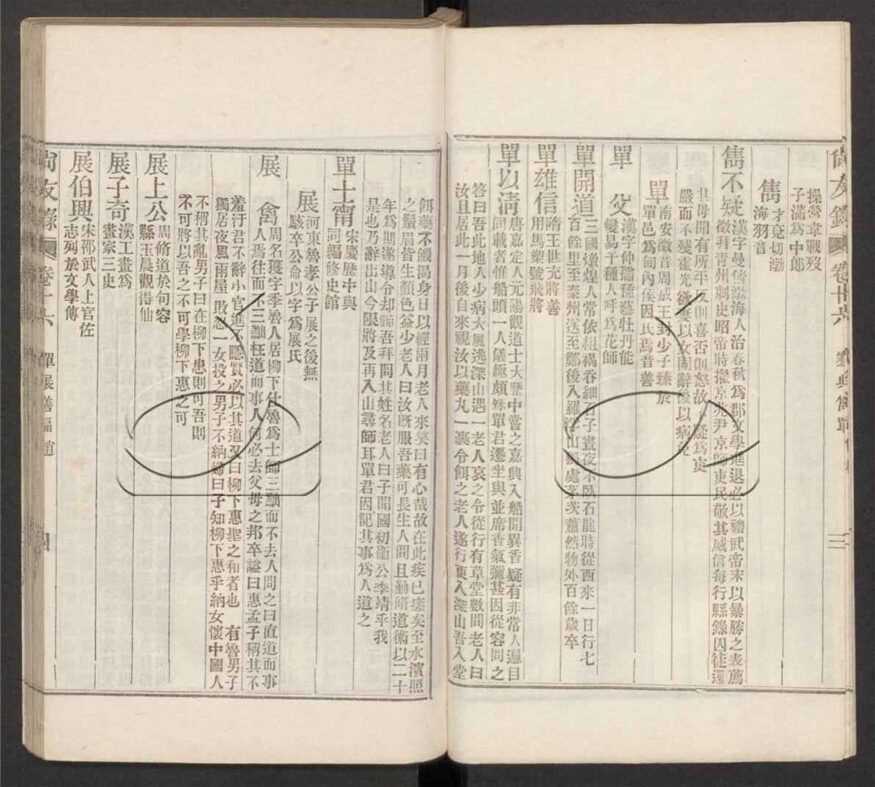 尙友錄 卷廿六 三
操嘗拿戰歿
子滿為中郎
雋 才兗切渤
海羽音
雋不疑 漢字曼倩渤海人治春秋為郡文學進退必以禮武帝末以暴勝之表薦
徵拜青州刺史昭帝時擢京兆尹京師吏民敬其威信每行縣錄囚徒還
其母問有所平反則喜否則怒故不疑為吏
嚴而不殘霍光欲妻以女固辭後以病免
單 南安徵音周成王封少子臻於
單邑為甸內侯因氏焉音善
單父 漢字仲孺種藝牡丹能
變易千種人呼為花師
單開道 三國燉煌人常依棍禍吞細石子晝夜不臥石龍時從西來一日行七
百餘里至秦州送至鄴後入羅浮山獨處茅茨蕭然物外百餘歲卒
單雄信 隋王世充將善
用馬槊號飛將
單以淸 唐嘉定人元陽觀道士大歷中嘗之嘉興入船聞異香疑有非常人遍目
同載者惟船頭一人儀極頗殊單君遷坐與並席香氣彌甚因從容問之
答曰吾此地人少病大風逃深山遇一老人哀之令從行有草堂數間老人曰
汝且居此一月後自來視汝以藥丸一裹令餌之老人遂行更入深山吾入堂
餌藥不饑渴身日以輕兩月老人來笑曰有心哉故在此疾已瘥矣至水濱照
之鬚眉皆生顏色益少老人曰汝既服吾藥可長生人間且勤脩道術以二十
年為期遂導令却歸吾拜問其姓名老人曰子聞國初衞公李靖乎我
是也乃辭出山今限將及再入山尋師耳單君因記其事為人道之
單士甯 宋慶歷中與
同編修史館
展 河東魯孝公子展之後無
駭卒公命以字為展氏
展禽 周名獲字季魯人居柳下仕魯為士師三黜而不去人問之曰直道而事
人焉往而不三黜枉道而事人何必去父母之邦卒謚曰惠孟子稱其不
羞汙君不辭小官進不隱賢必以其道又曰柳下惠聖之和者也 有魯男子
獨居夜風雨屋毀一女投之男子不納婦曰子知柳下惠乎納女懷中國人
不稱其亂男子曰在柳下惠則可吾則
不可將以吾之不可學柳下惠之可
展上公 周脩道於句容
縣玉晨觀證仙
展子奇 漢工畫為
畫家三史
展伯興 宋邵武人上官佐
志列於文學傳
尙友錄 卷廿六 單展善福趙 四